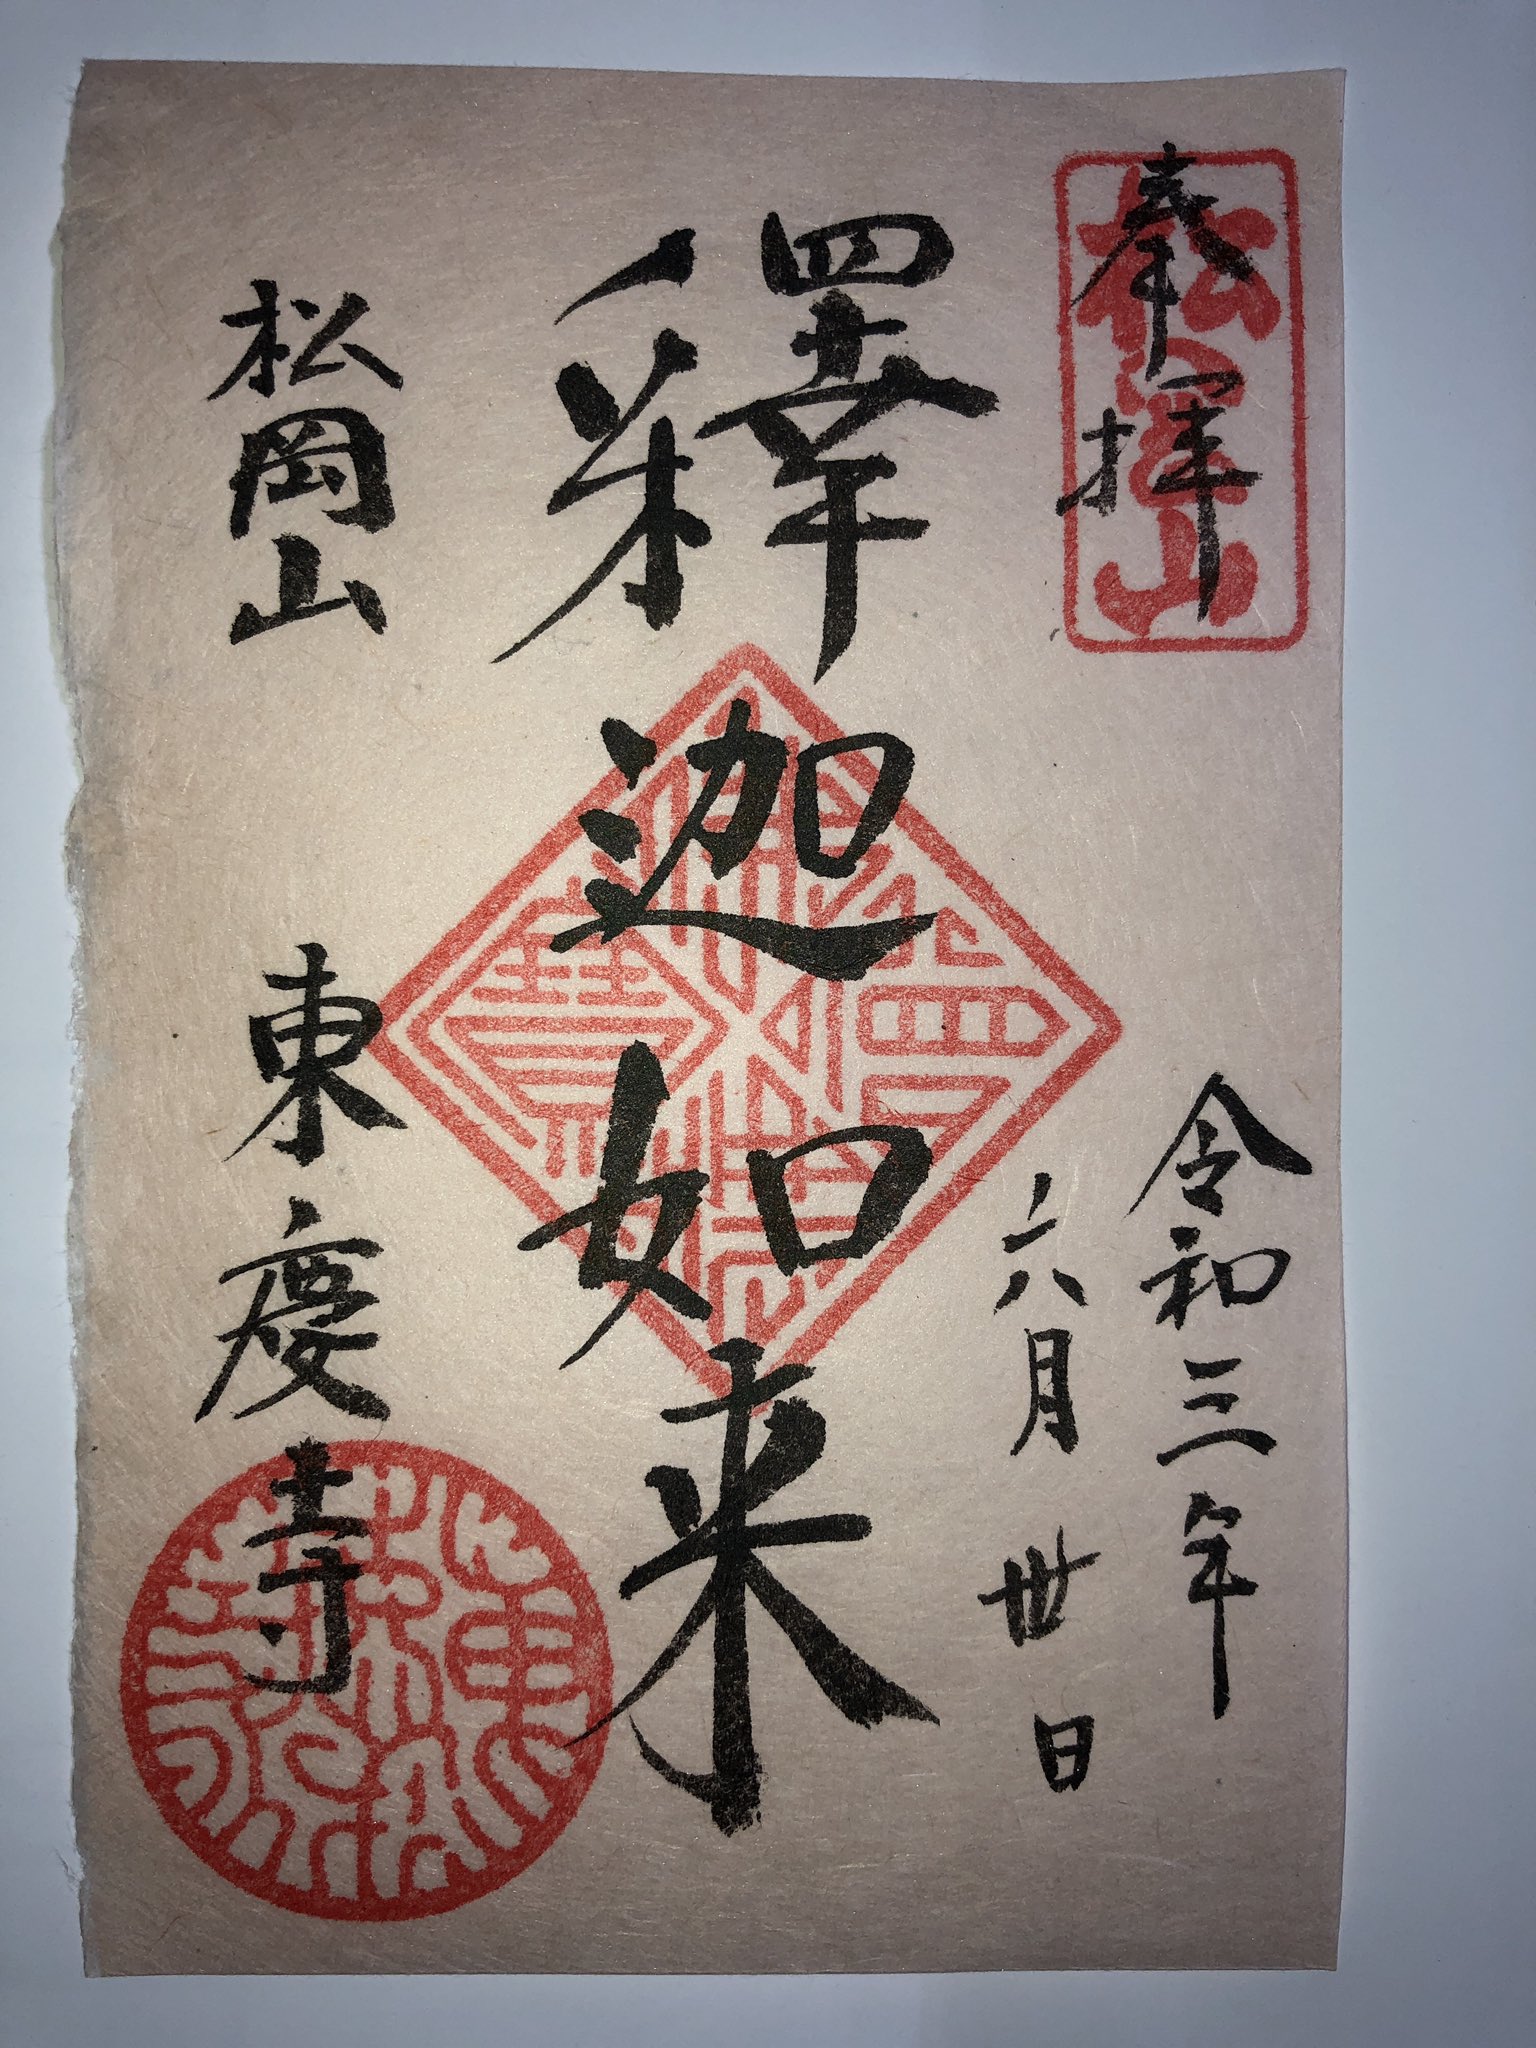 奉拝
松岡山
令和三年
六月卅日
釋迦如来
松岡山
東慶寺